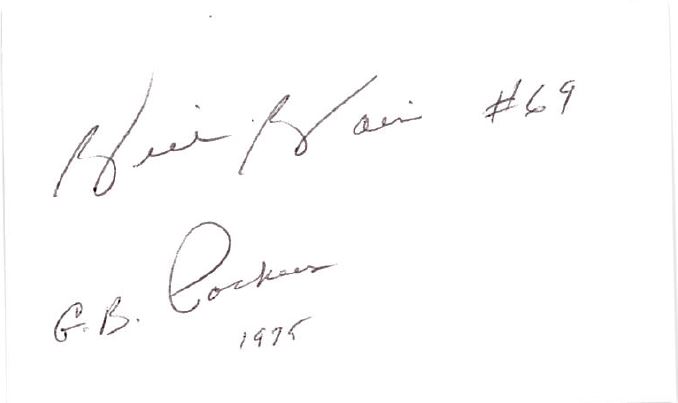 Bill Bain #69
G.B. Packers
1975